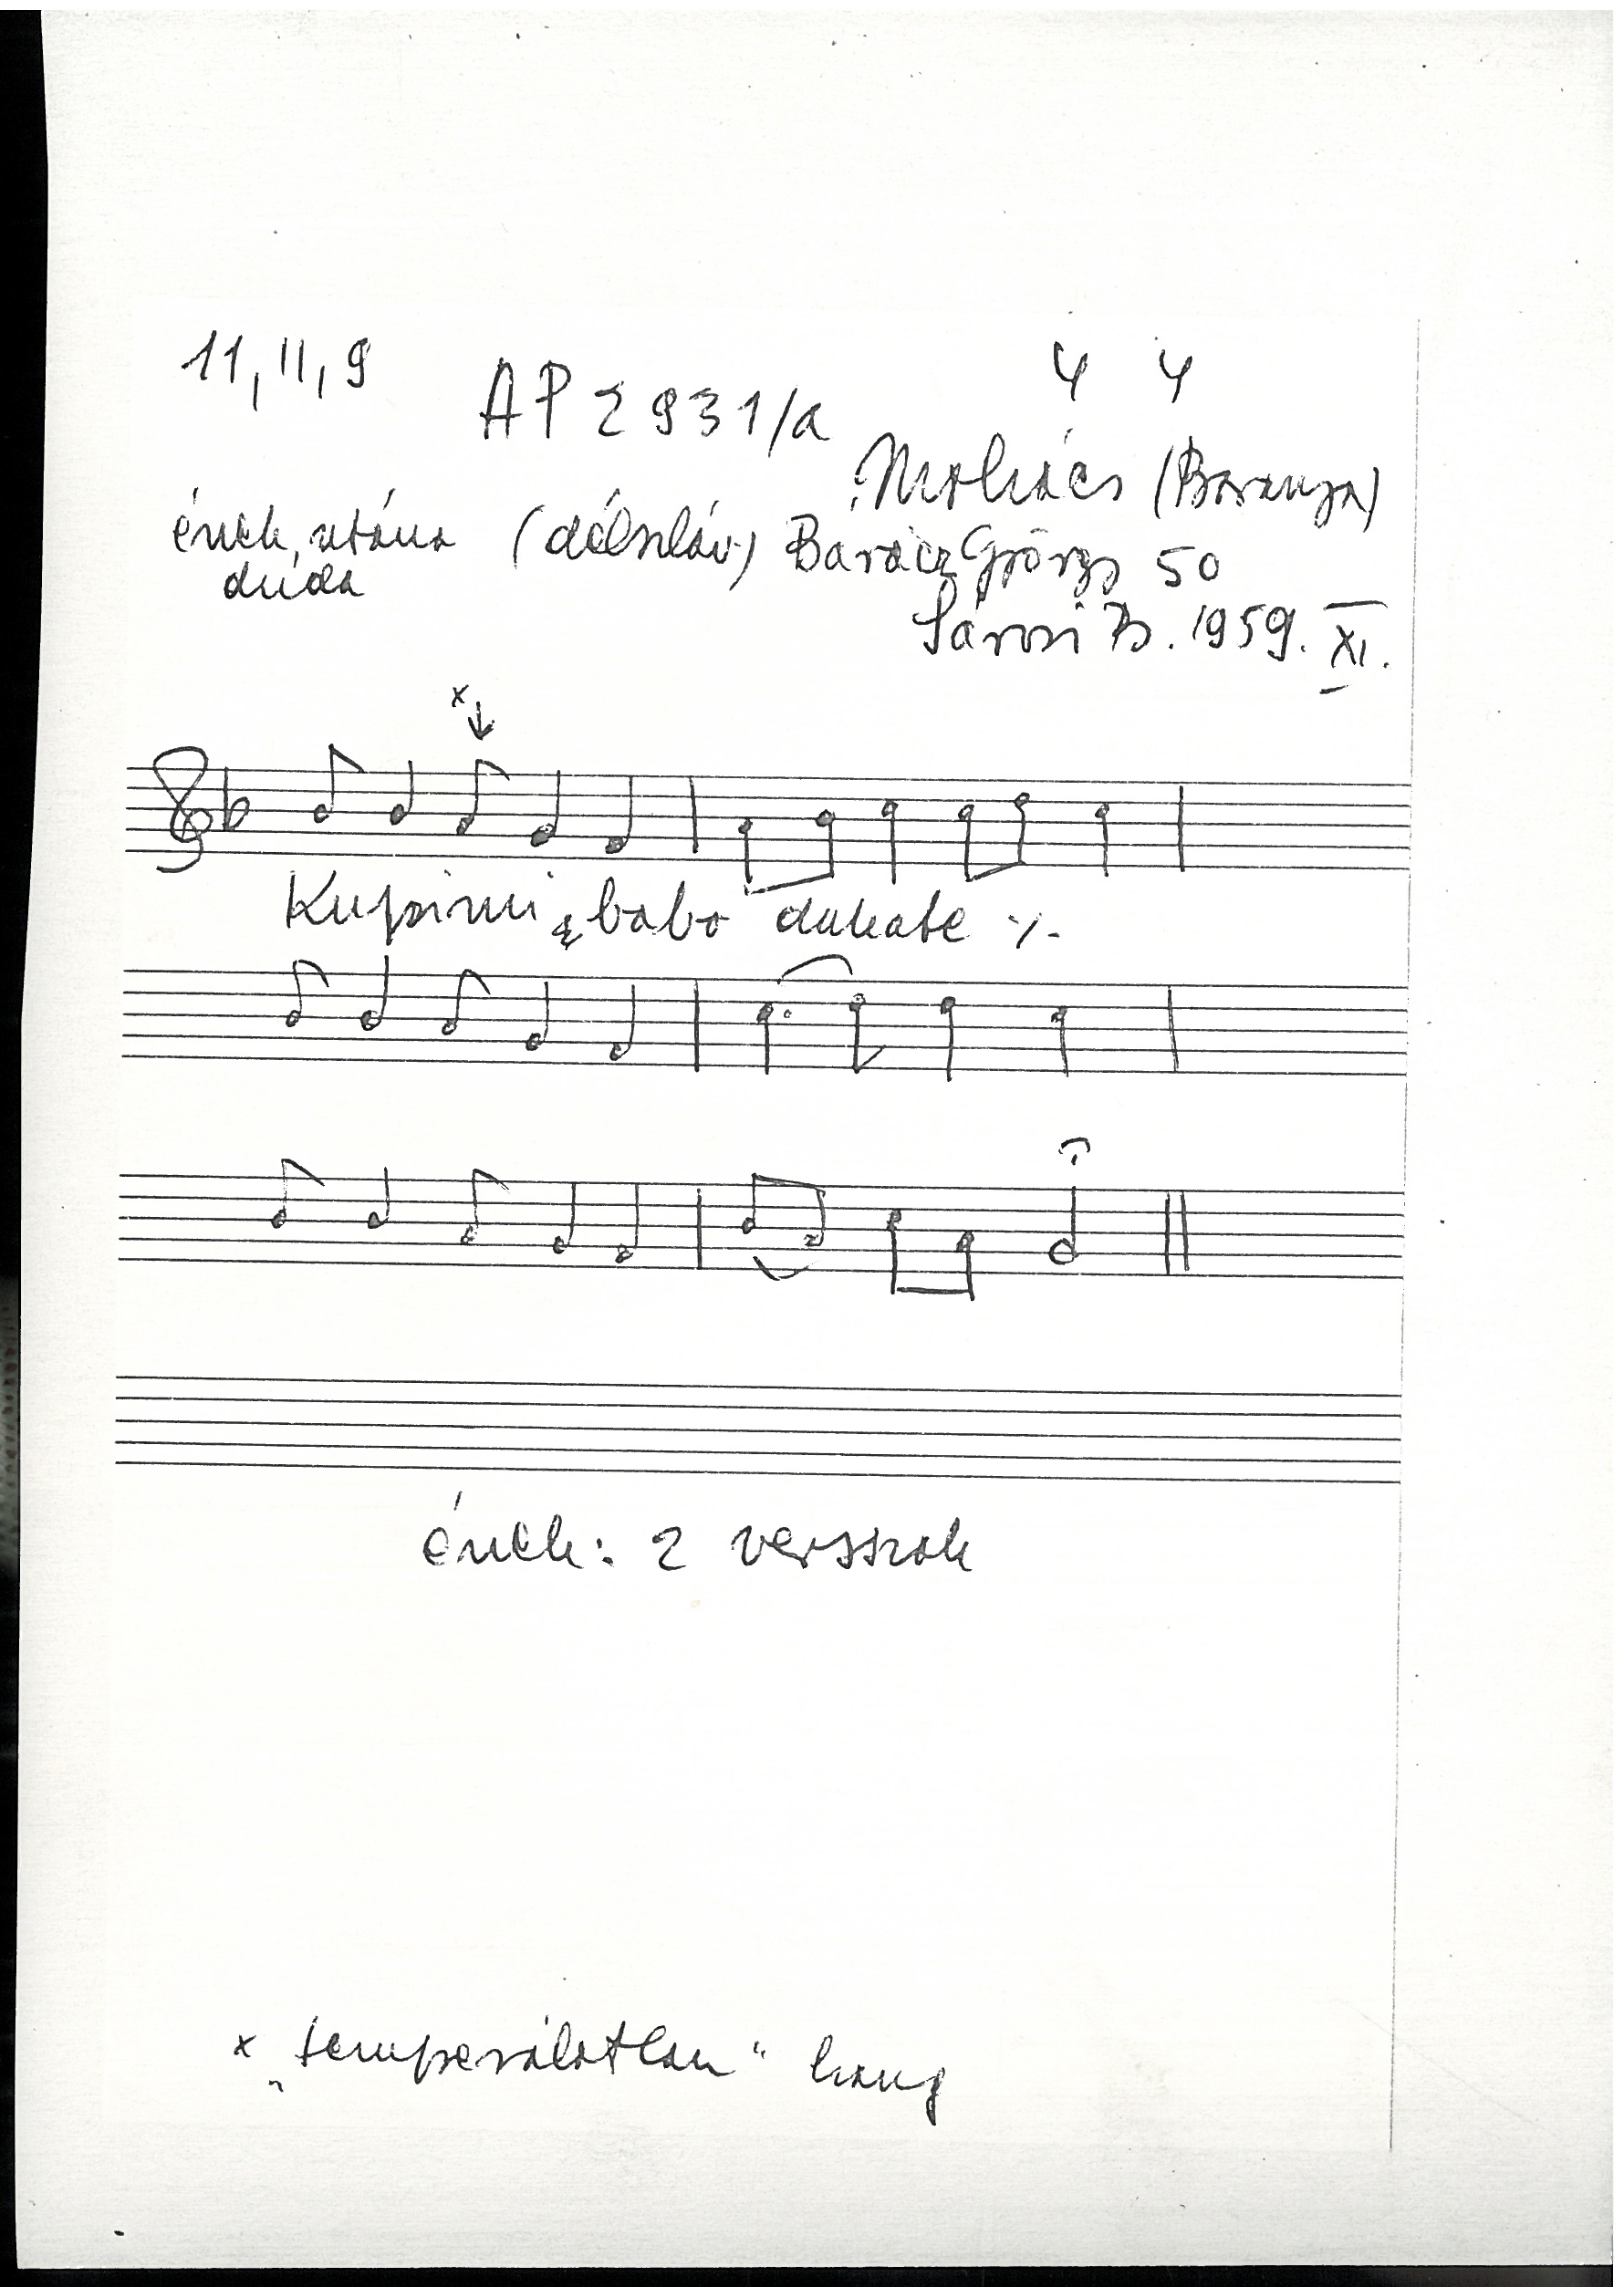 11, 11, 9
AP 2931/a
4 4
Mohács (Baranya)
ének, utána (délszláv) Barácz György 50
duda
Sárosi B. 1959. XI.
x
Kupi mi babo dukate ·/·
ének: 2 versszak
x „temperálatlan" hang